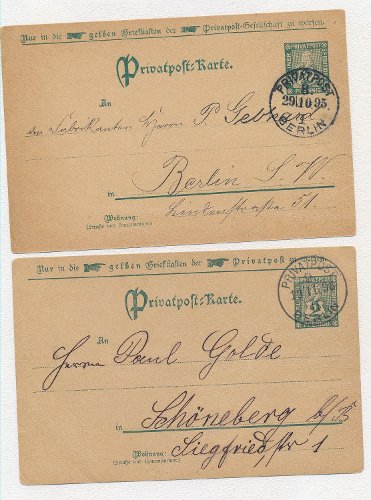 Nur in die gelben Briefkästen der Privatpost-Gesellschaft zu werfen.
PRIVATPOST
PFENNIG
PRIVATPOST
29 10 95
BERLIN
Privatpost-Karte.
An
den Fabrikanten Herrn P.
in Berlin S. W.
Wohnung:
(Straße und Hausnummer)
Lindenstraße 51.
Nur in die gelben Briefkästen der Privatpost
PRIVATPOST
2
Privatpost-Karte.
An
Herrn Paul Golde
in Schöneberg b/B
Wohnung:
(Straße und Hausnummer)
Siegfriedstr 1